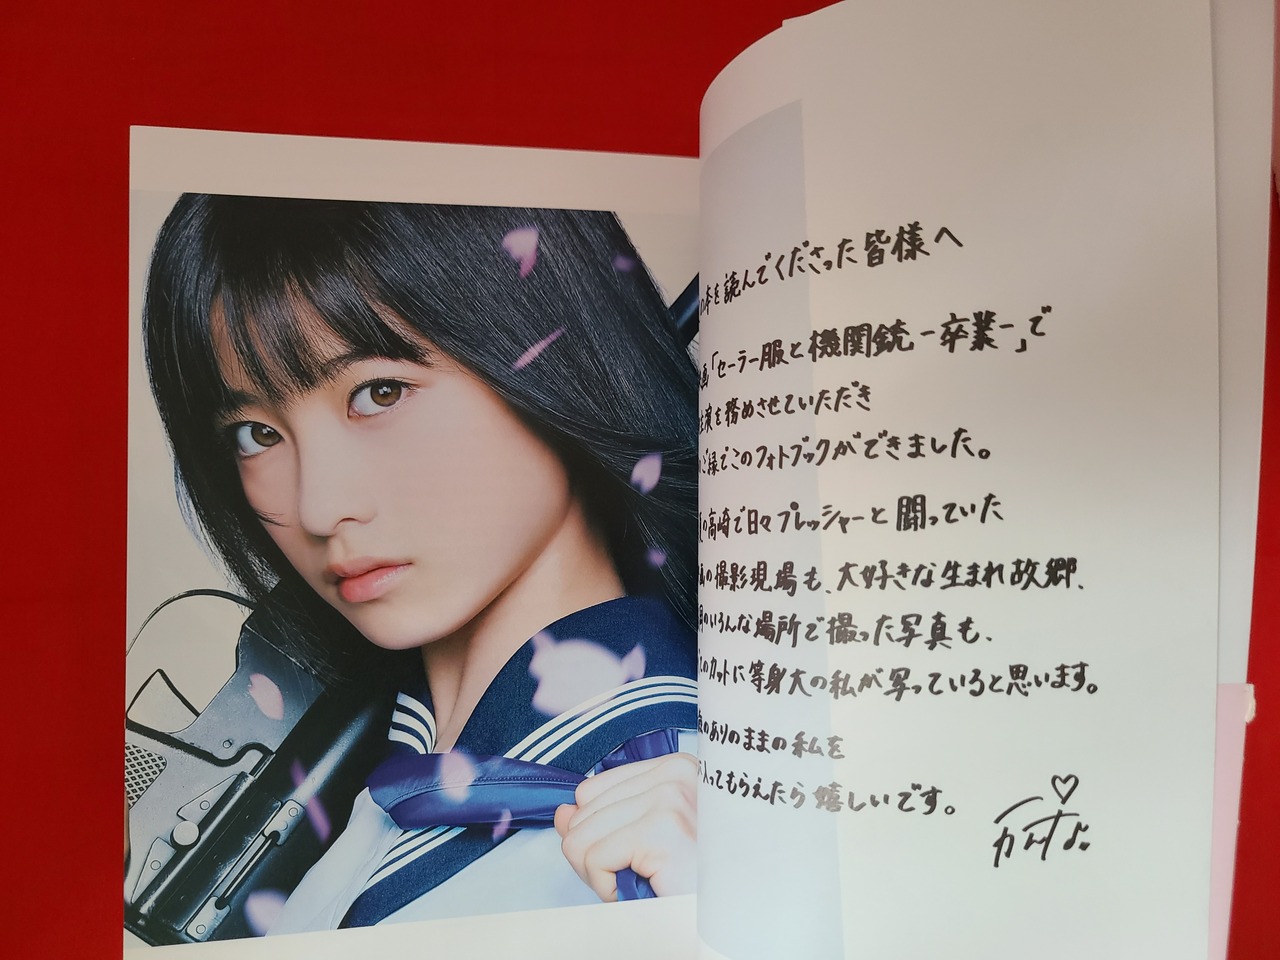 の本を読んでくださった皆様へ
画「セーラー服と機関銃 -卒業-」で
主演を務めさせていただき
ご縁でこのフォトブックができました。
の高崎で日々プレッシャーと闘っていた
画の撮影現場も、大好きな生まれ故郷、
のいろんな場所で撮った写真も、
のカットに等身大の私が写っていると思います。
のありのままの私を
入ってもらえたら嬉しいです。
かんな